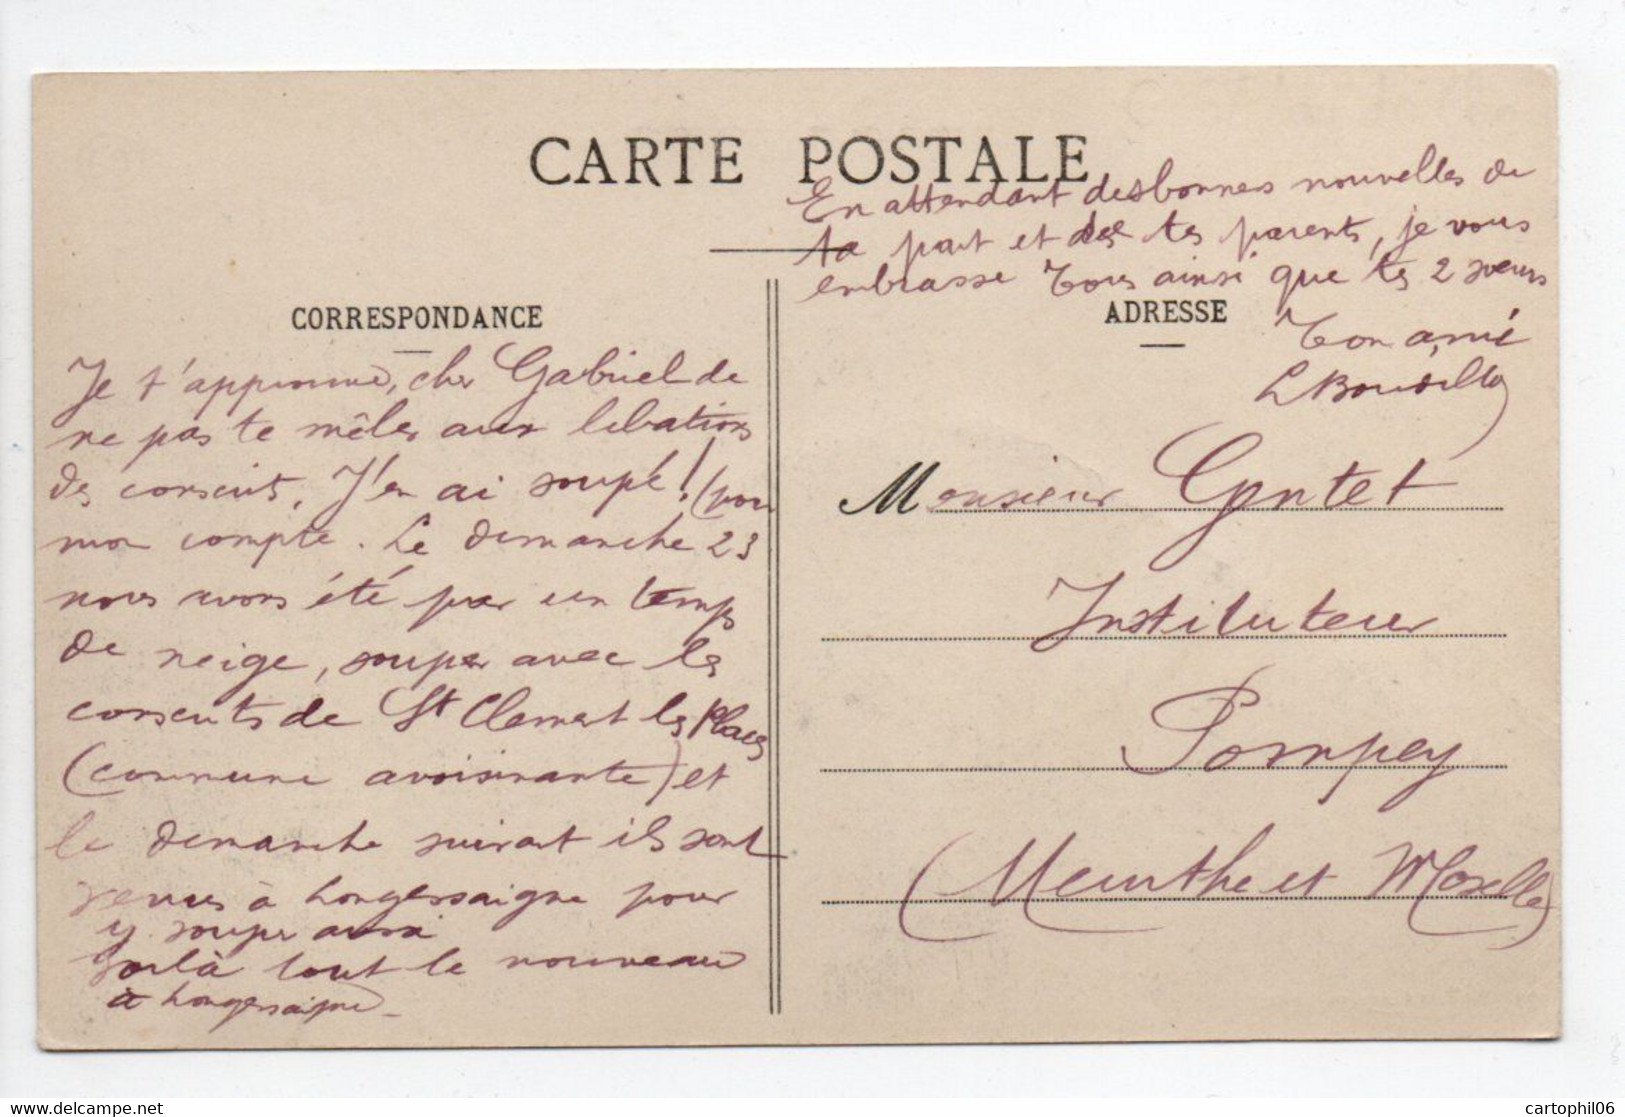 CARTE POSTALE
CORRESPONDANCE
Je t'approuve, cher Gabriel de
ne pas te mêler aux libations
des conscrits. J'en ai soupé! (pour
mon compte. Le dimanche 23
nous avons été par un temps
de neige, souper avec les
conscrits de St Clement les Places
(commune avoisinante) et
le dimanche suivant ils sont
venus à Longessaigne pour
y souper aussi
Voilà tout le nouveau
à Longessaigne_
En attendant des bonnes nouvelles de
ta part et de tes parents, je vous
embrasse tous ainsi que tes 2 soeurs
ADRESSE
Ton ami
Monsieur
Instituteur
Pompey
(Meurthe et Moselle)
cartophil06